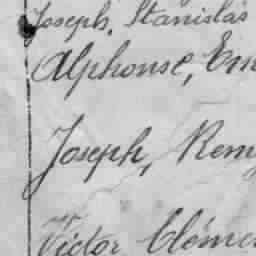 Joseph, Stanislas
Alphonse, Em
Joseph, Remy
Victor Clémen